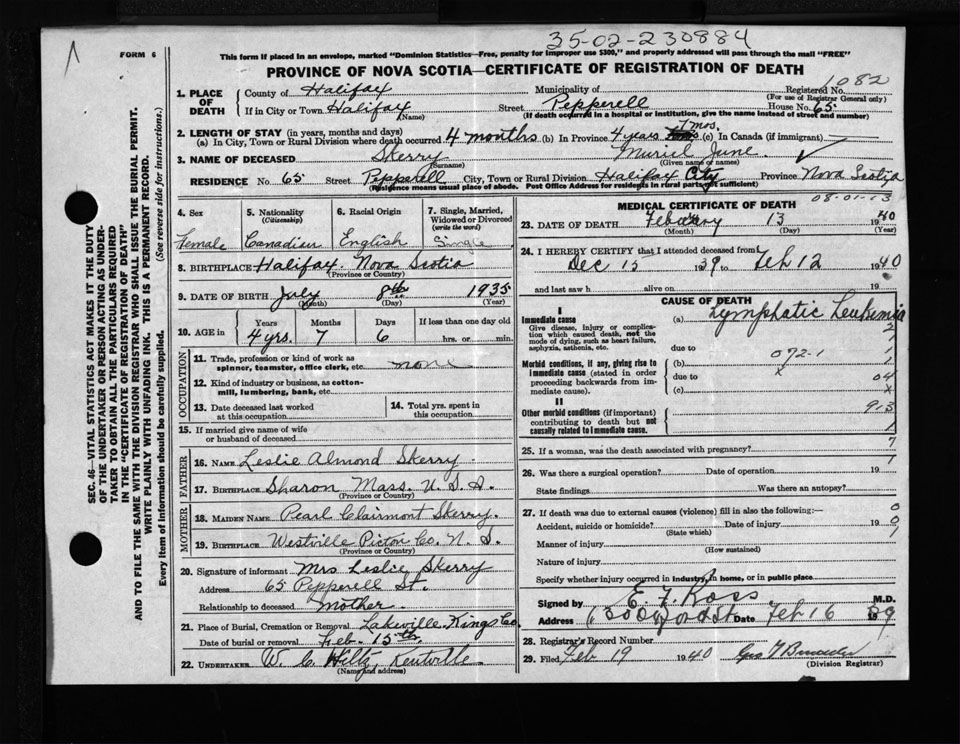 35-02-230884
FORM 6
This form if placed in an envelope, marked "Dominion Statistics—Free, penalty for improper use $300," and properly addressed will pass through the mail "FREE"
PROVINCE OF NOVA SCOTIA—CERTIFICATE OF REGISTRATION OF DEATH
SEC. 46—VITAL STATISTICS ACT MAKES IT THE DUTY
OF THE UNDERTAKER OR PERSON ACTING AS UNDER-
TAKER TO OBTAIN ALL THE PARTICULARS REQUIRED
IN THE "CERTIFICATE OF REGISTRATION OF DEATH"
AND TO FILE THE SAME WITH THE DIVISION REGISTRAR WHO SHALL ISSUE THE BURIAL PERMIT.
WRITE PLAINLY WITH UNFADING INK. THIS IS A PERMANENT RECORD.
Every item of information should be carefully supplied. (See reverse side for instructions.)
1. PLACE OF DEATH County of Halifax Municipality of Registered No. 1082
(For use of Registrar General only)
If in City or Town Halifax Street Pepperell House No. 65
(Name) (If death occurred in a hospital or institution, give the name instead of street and number)
2. LENGTH OF STAY (in years, months and days)
(a) In City, Town or Rural Division where death occurred 4 months (b) In Province 4 years 7 mos. (c) In Canada (if immigrant)
3. NAME OF DECEASED Skerry Muriel June
(Surname) (Given name or names)
RESIDENCE No. 65 Street Pepperell City, Town or Rural Division Halifax City Province Nova Scotia
(Residence means usual place of abode. Post Office Address for residents in rural parts not sufficient)
08-01-13
4. Sex
Female
5. Nationality
(Citizenship)
Canadian
6. Racial Origin
English
7. Single, Married, Widowed or Divorced
(write the word)
Single
8. BIRTHPLACE Halifax Nova Scotia
(Province or Country)
9. DATE OF BIRTH July 8th 1935
(Month) (Day) (Year)
10. AGE in Years Months Days If less than one day old
4 yrs. 7 6 hrs. or min.
OCCUPATION
11. Trade, profession or kind of work as
spinner, teamster, office clerk, etc. none
12. Kind of industry or business, as cotton-
mill, lumbering, bank, etc.
13. Date deceased last worked
at this occupation
14. Total yrs. spent in
this occupation
15. If married give name of wife
or husband of deceased
FATHER
16. NAME Leslie Almond Skerry
17. BIRTHPLACE Sharon Mass. U.S.A.
(Province or Country)
MOTHER
18. MAIDEN NAME Pearl Clairmont Skerry.
19. BIRTHPLACE Westville Picton Co. N.S.
(Province or Country)
20. Signature of informant Mrs Leslie Skerry
Address 65 Pepperell St.
Relationship to deceased Mother
21. Place of Burial, Cremation or Removal Lakeville Kings Co.
Date of burial or removal Feb. 15th
22. UNDERTAKER W. C. Kentville
(Name and address)
MEDICAL CERTIFICATE OF DEATH
23. DATE OF DEATH February 13 1940
(Month) (Day) (Year)
24. I HEREBY CERTIFY that I attended deceased from
Dec 13 1939 to Feb 12 1940
and last saw h alive on 19
CAUSE OF DEATH
Immediate cause (a) Lymphatic Leukemia
Give disease, injury or complica-
tion which caused death, not the
mode of dying, such as heart failure,
asphyxia, asthenia, etc.
due to
Morbid conditions, if any, giving rise to
immediate cause (stated in order
proceeding backwards from im-
mediate cause).
(b) 072-1
due to 04
(c) x
II
Other morbid conditions (if important)
contributing to death but not
causally related to immediate cause.
913
25. If a woman, was the death associated with pregnancy?
26. Was there a surgical operation? Date of operation 19
State findings Was there an autopsy?
27. If death was due to external causes (violence) fill in also the following:—
Accident, suicide or homicide? Date of injury 19
(State which)
Manner of injury
(How sustained)
Nature of injury
Specify whether injury occurred in industry, in home, or in public place
Signed by E. F. Ross M.D.
Address Date Feb 16
28. Registrar's Record Number
29. Filed Feb 19 1940
(Division Registrar)